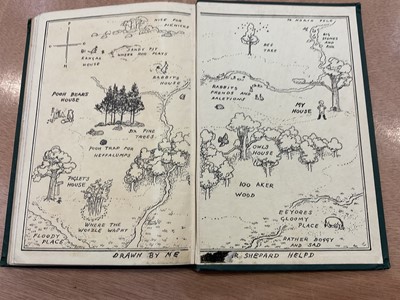 NICE FOR
PICNICKS
SANDY PIT
WHERE ROO PLAYS
KANGAS
HOUSE
RABBITS
HOUSE
POOH BEARS
HOUSE
SIX PINE
TREES
POOH TRAP FOR
HEFFALUMPS
PIGLETS
HOUSE
WHERE THE
WOOZLE WASNT
FLOODY
PLACE
DRAWN BY ME
TO NORTH POLE
BIG
STONES
AND
ROX
BEE
TREE
RABBITS
FRENDS AND
RALETIONS
MY
HOUSE
OWLS
HOUSE
100 AKER
WOOD
EEYORES
GLOOMY
PLACE
RATHER BOGGY
AND SAD
SHEPARD HELPD